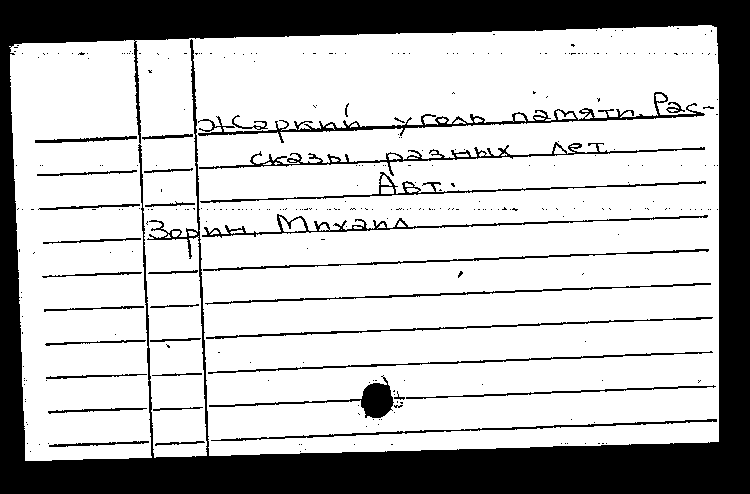 Жаркий уголь памяти. Рас-
сказы разных лет
Авт.
Зорин, Михаил